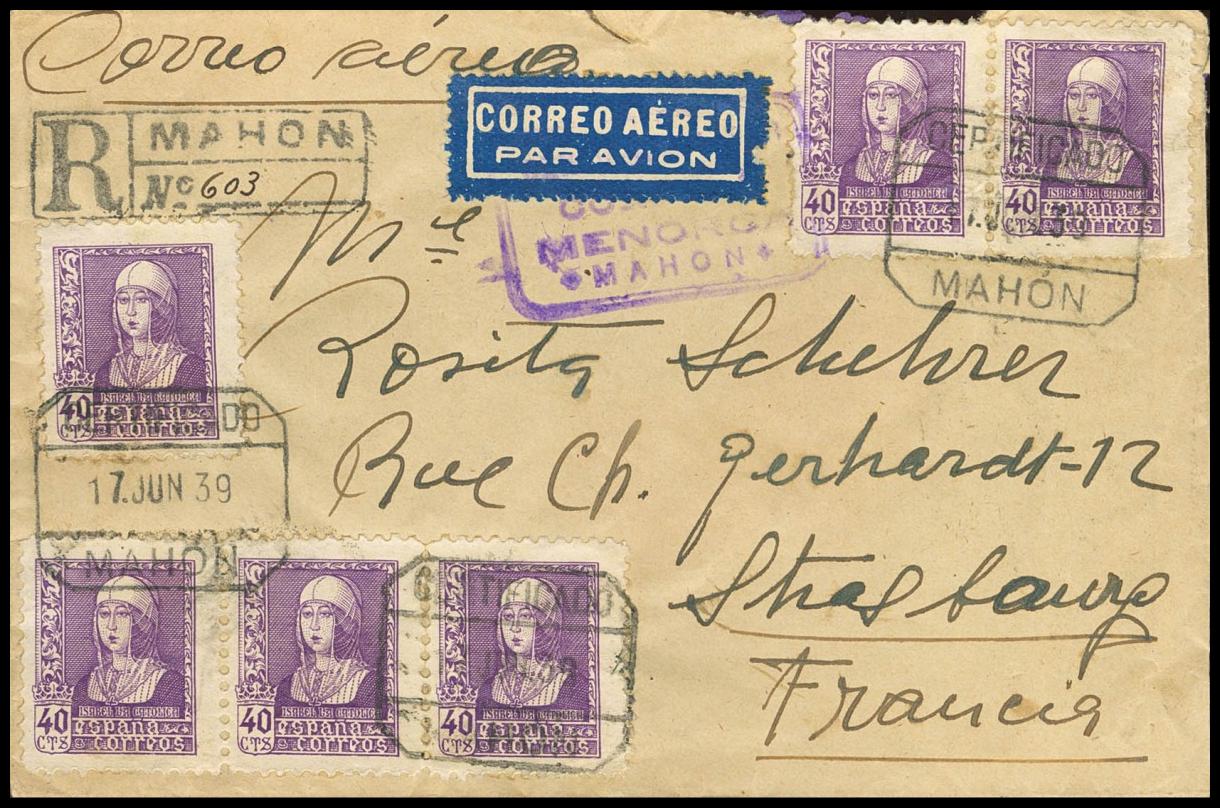 Correo aéreo
CORREO AÉREO
PAR AVION
R MAHON
Nº 603
MENORCA
MAHON
40 CTS ISABEL LA CATOLICA
España
correos
40 CTS ISABEL LA CATOLICA
España
correos
CERTIFICADO
JUN 39
MAHON
Mlle
Rosita Schehrer
Rue Ch. Gerhardt-12
Strasbourg
Francia
40 CTS ISABEL LA CATOLICA
España
correos
CERTIFICADO
17.JUN 39
MAHON
40 CTS ISABEL LA CATOLICA
España
correos
40 CTS ISABEL LA CATOLICA
España
correos
40 CTS ISABEL LA CATOLICA
España
correos
CERTIFICADO
JUN 39